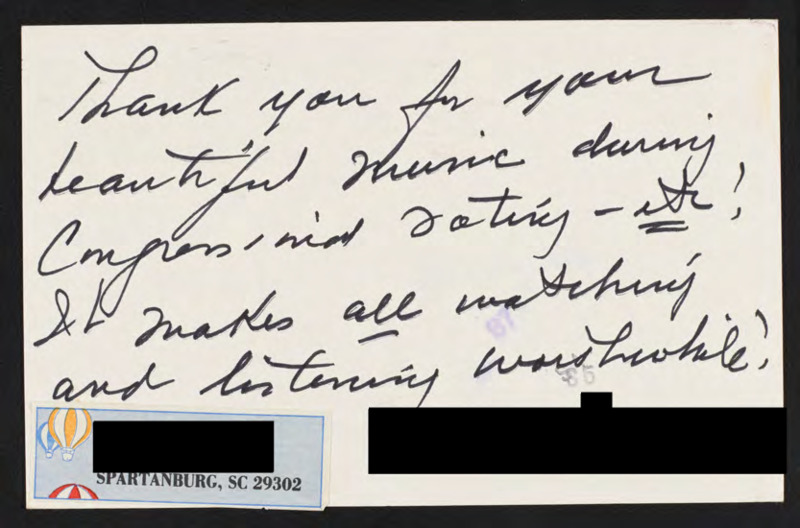 Thank you for your
beautiful music during
Congressional voting - etc!
It makes all watching
and listening worthwhile!
SPARTANBURG, SC 29302